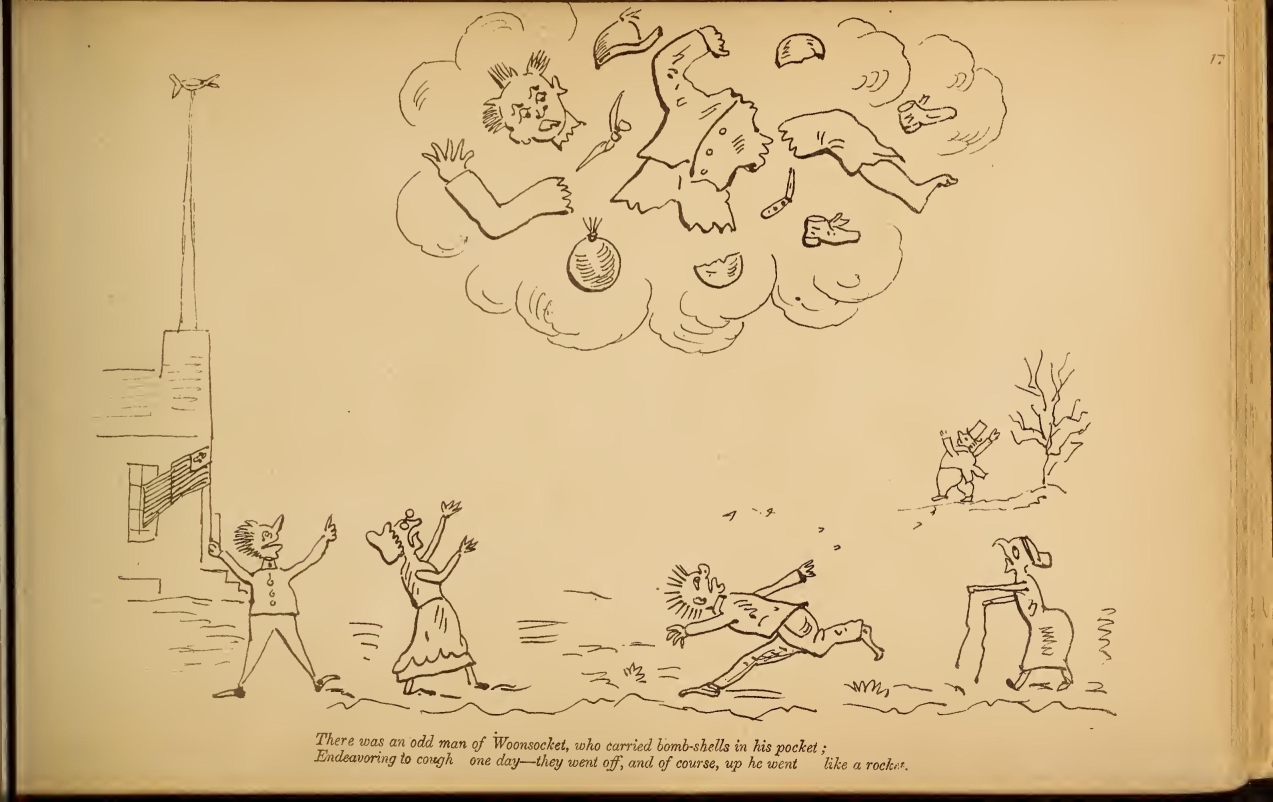 17
There was an odd man of Woonsocket, who carried bomb-shells in his pocket;
Endeavoring to cough one day—they went off, and of course, up he went like a rocket.